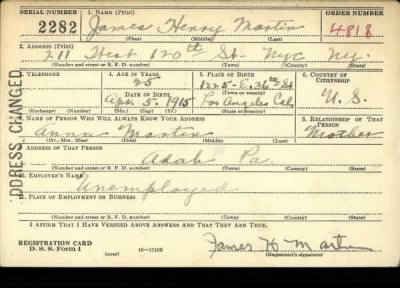 SERIAL NUMBER 1. NAME (Print) ORDER NUMBER
2282 James Henry Martin 4818
(First) (Middle) (Last)
2. ADDRESS (Print)
211 West 120th St. NYC NY.
(Number and street or R. F. D. number) (Town) (County) (State)
3. TELEPHONE 4. AGE IN YEARS 5. PLACE OF BIRTH 6. COUNTRY OF CITIZENSHIP
25 1225-E. 36th St
DATE OF BIRTH (Town or county)
Apr. 5. 1915 Los Angeles Cal. U. S.
(Exchange) (Number) (Mo.) (Day) (Yr.) (State or country)
7. NAME OF PERSON WHO WILL ALWAYS KNOW YOUR ADDRESS 8. RELATIONSHIP OF THAT PERSON
Anna Martin Mother
(Mr., Mrs., Miss) (First) (Middle) (Last)
9. ADDRESS OF THAT PERSON
Adah Pa.
(Number and street or R. F. D. number) (Town) (County) (State)
10. EMPLOYER'S NAME
Unemployed
11. PLACE OF EMPLOYMENT OR BUSINESS
(Number and street or R. F. D. number) (Town) (County) (State)
I AFFIRM THAT I HAVE VERIFIED ABOVE ANSWERS AND THAT THEY ARE TRUE.
REGISTRATION CARD
D. S. S. Form 1 (over) 16—17105 James H Martin
(Registrant's signature)
DDRESS CHANGED